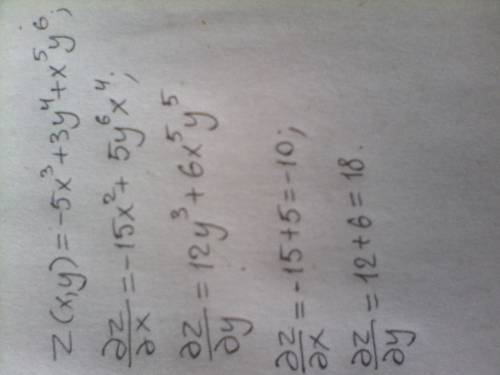 z(x,y)=-5x³+3y⁴+x⁵y⁶;
∂z/∂x=-15x²+5y⁶x⁴;
∂z/∂y=12y³+6x⁵y⁵.
∂z/∂x=-15+5=-10;
∂z/∂y=12+6=18.